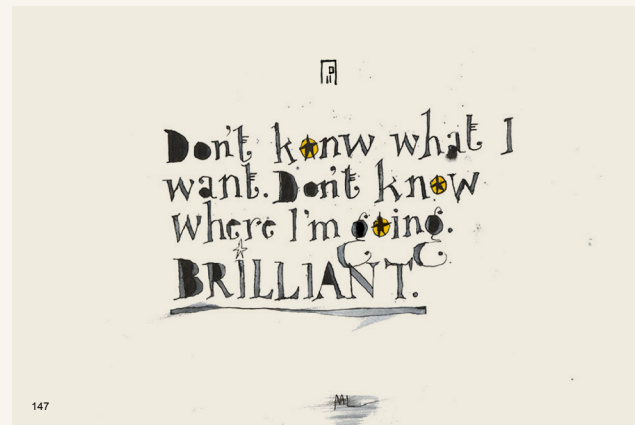 Don't konw what I
want. Don't know
where I'm going.
BRILLIANT.
147